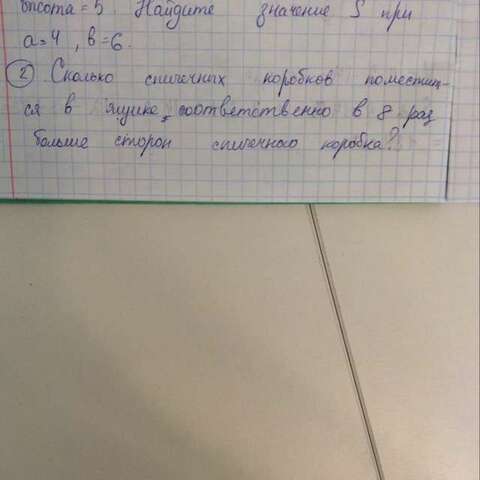 высота = 5. Найдите значение S при
a=4, b=6.
2 Сколько спичечных коробков поместит-
ся в ящике, соответственно в 8 раз
больше сторон спичечного коробка?